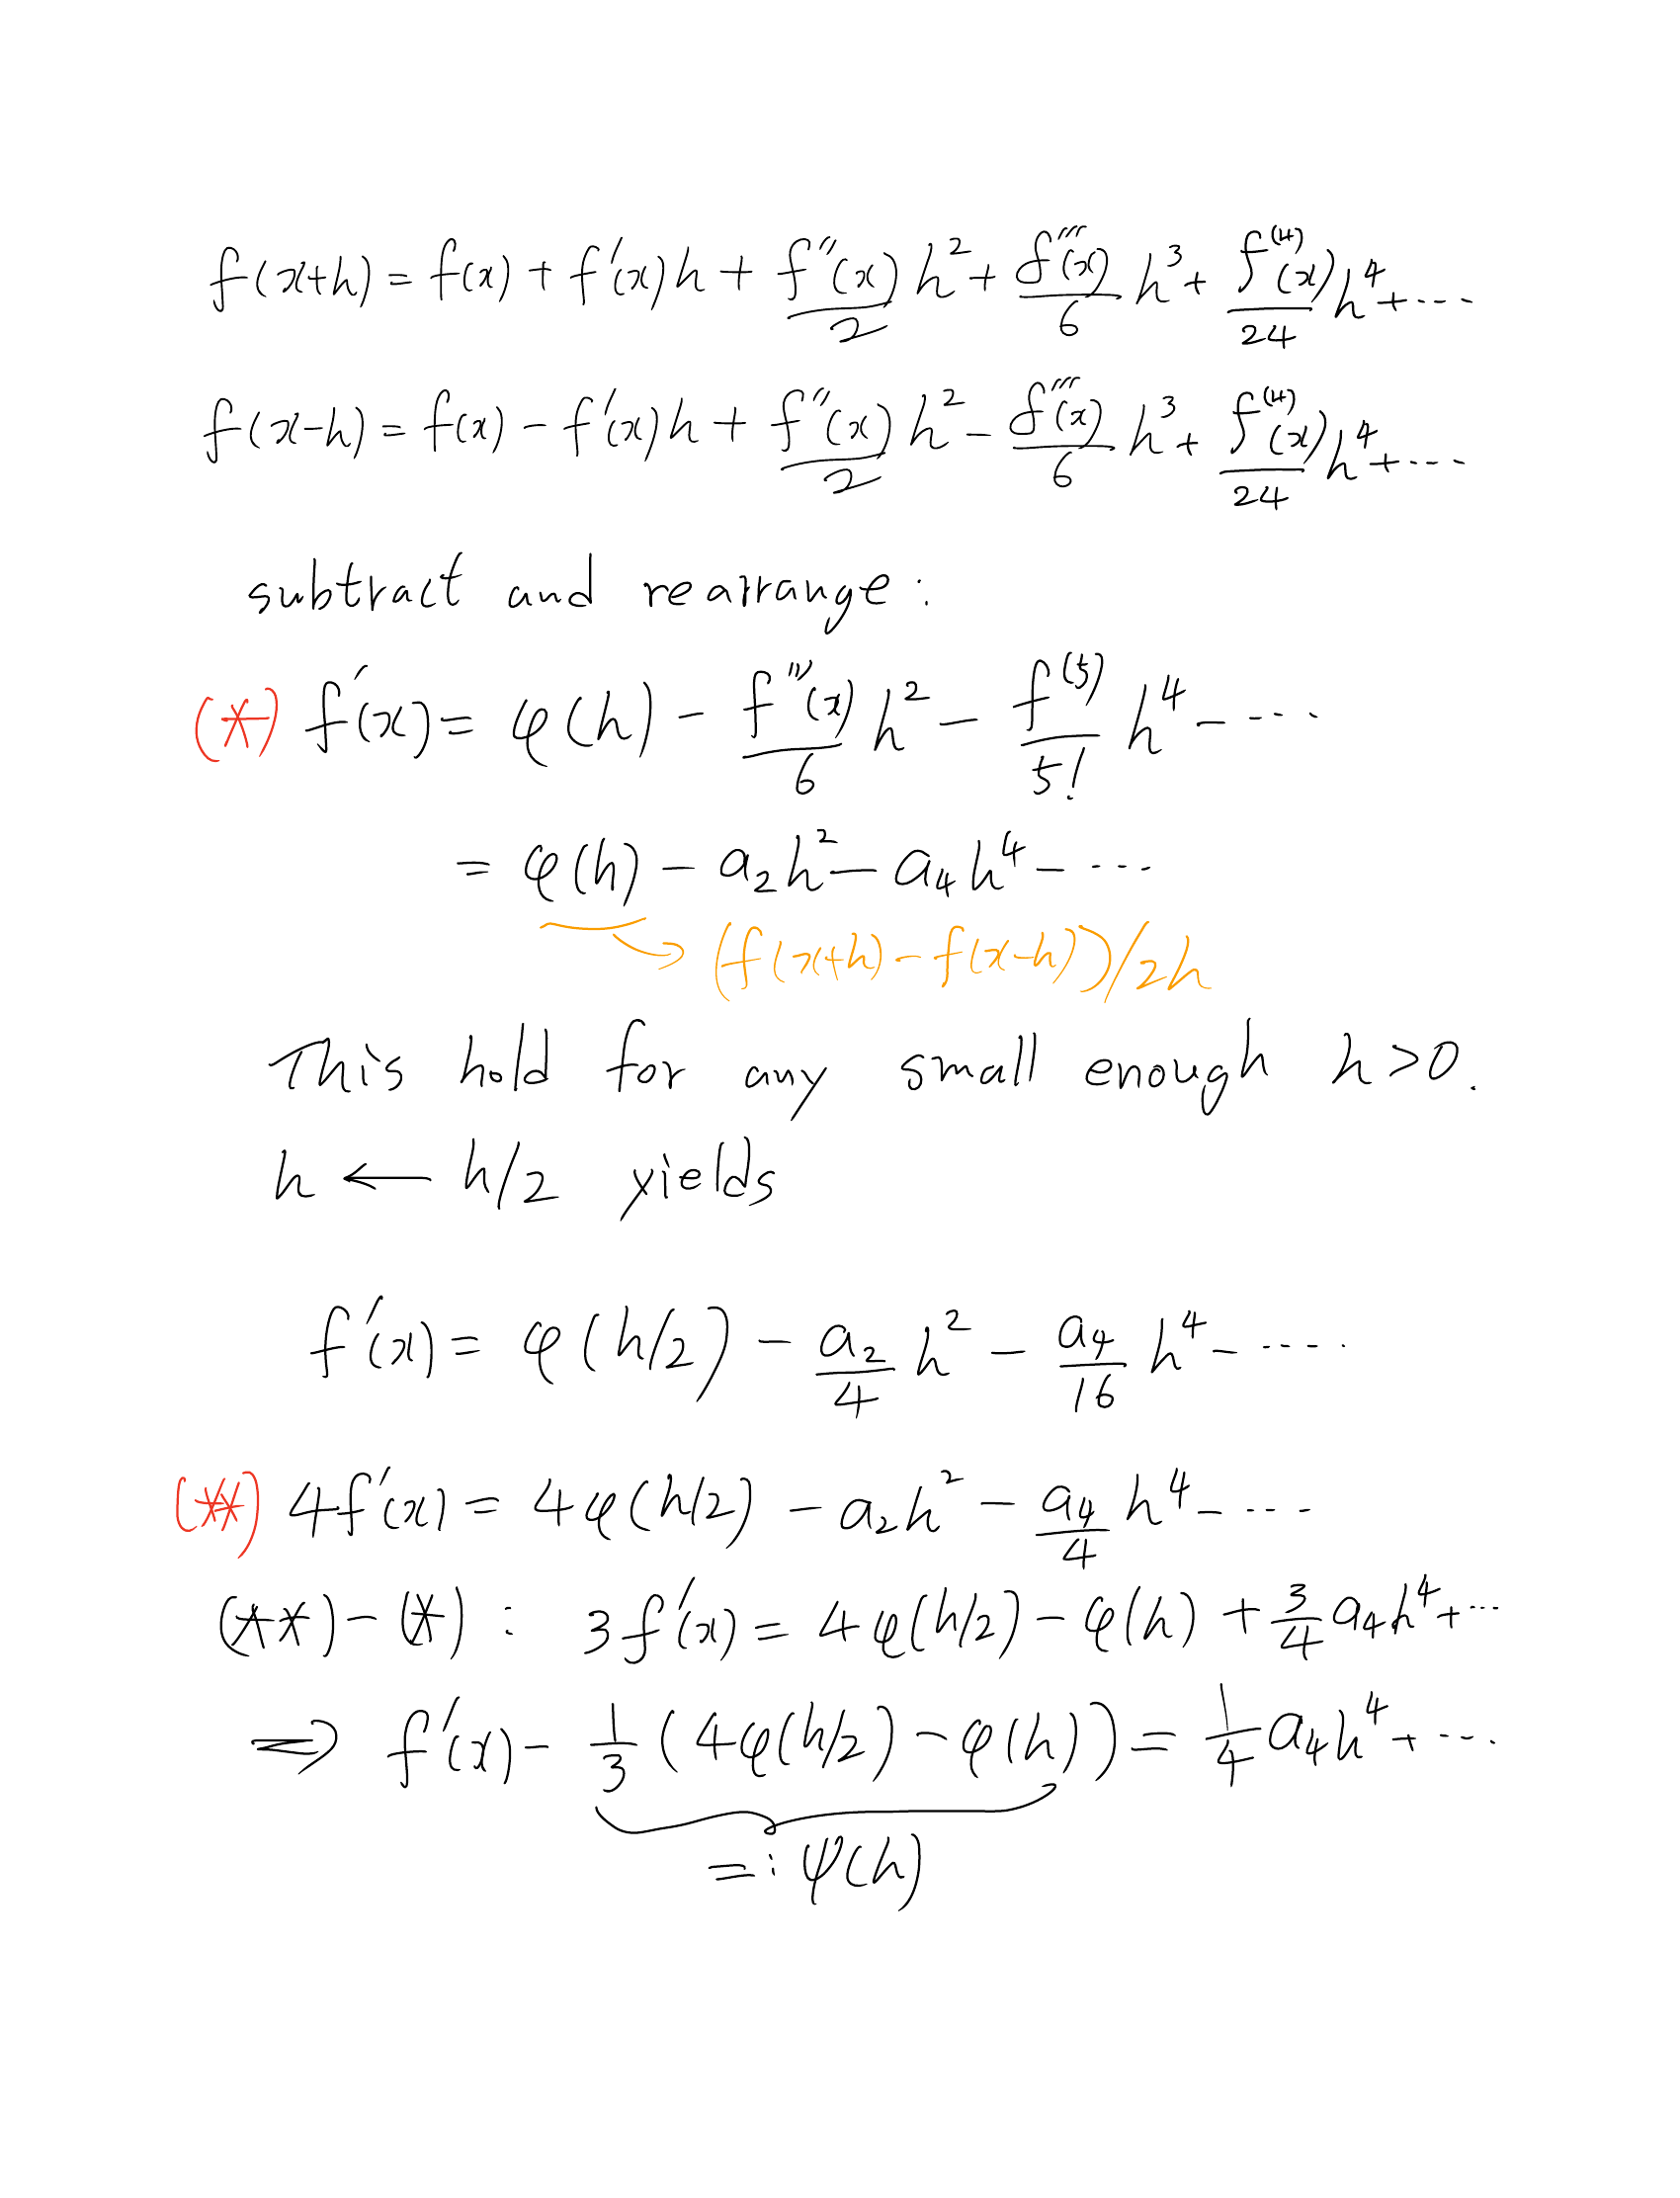 f(x+h) = f(x) + f'(x)h + f''(x)/2 h² + f'''(x)/6 h³ + f⁽⁴⁾(x)/24 h⁴ + ----
f(x-h) = f(x) - f'(x)h + f''(x)/2 h² - f'''(x)/6 h³ + f⁽⁴⁾(x)/24 h⁴ + ----
subtract and rearrange:
(*) f'(x) = φ(h) - f'''(x)/6 h² - f⁽⁵⁾/5! h⁴ - ----
= φ(h) - a₂h² - a₄h⁴ - ----
→ (f(x+h) - f(x-h))/2h
This hold for any small enough h>0.
h ← h/2 yields
f'(x) = φ(h/2) - a₂/4 h² - a₄/16 h⁴ - -----
(**) 4f'(x) = 4φ(h/2) - a₂h² - a₄/4 h⁴ - ----
(**) - (*) : 3f'(x) = 4φ(h/2) - φ(h) + 3/4 a₄h⁴ + ---
⇒ f'(x) - 1/3 (4φ(h/2) - φ(h)) = 1/4 a₄h⁴ + ----
=: ψ(h)